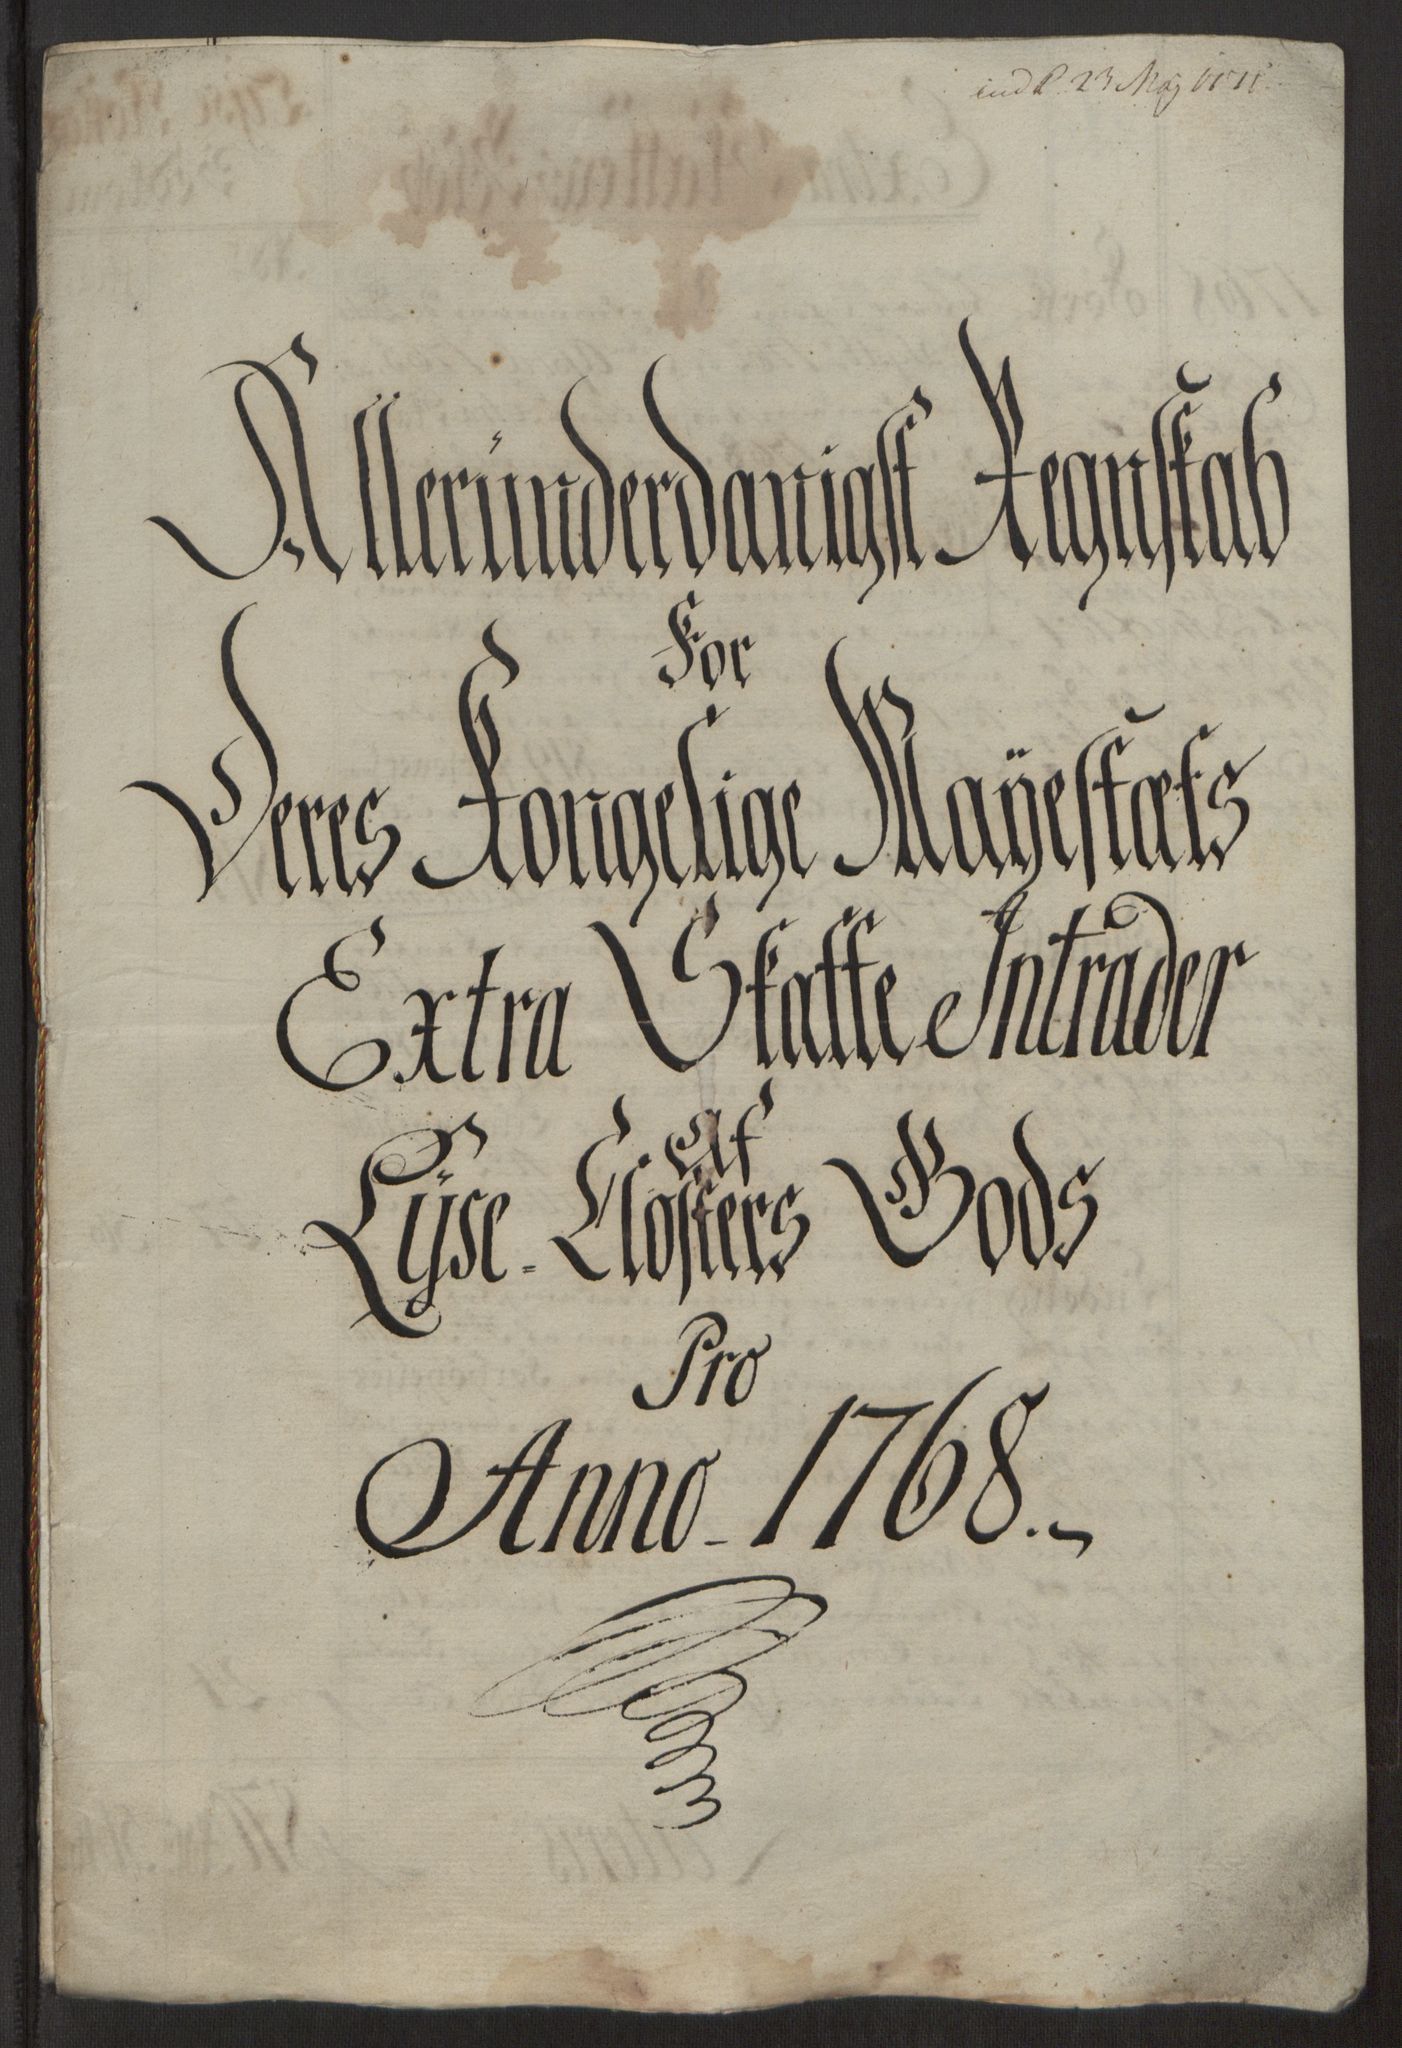 ind d. 23 Maj
Alleründerdanigst Regnskab
For
Deres Kongelige Mayestæts
Extra Skatte Intrader
Af
Lyse-Closters Gods
Pro
Anno 1768.